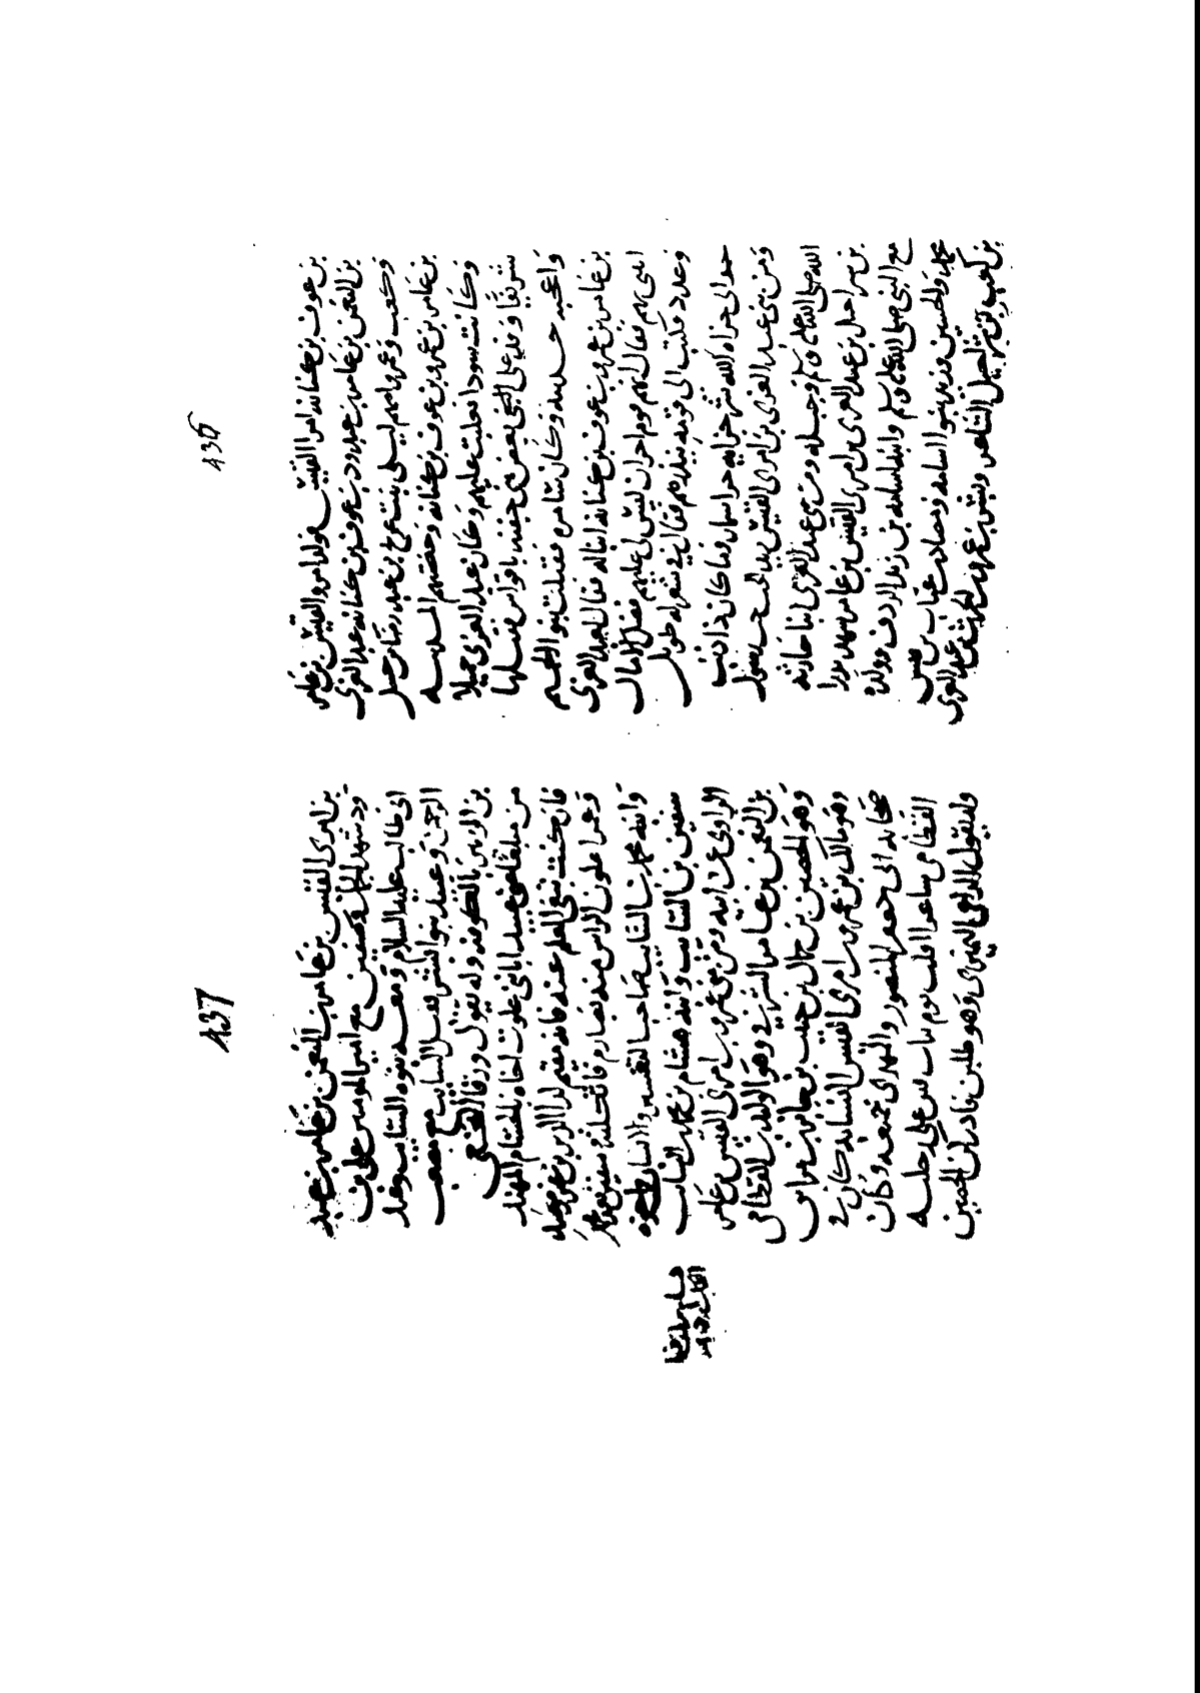 436
بن عوف بن كنانه امرا القيس فولد امرو القيس بن عامر
بن النعمن بن عامر بن عبد ود بن عوف بن كنانه عبد العزى
وكعب وعمرا امهم ليلى بنت عريج بن عبد رضا بن جبل
بن عامر بن عمرو بن عوف بن كنانه وحضنتهم
وكانت سودا فغلبت عليهم وكان عبد العزى جميلا
شريفا وفد على بعض بني جفنه بافراس فقبلها
واعجبه حديثه وكان يسامره فقتلت بنو
بن عامر بن عمرو بن عوف بن كنانه ابنا له فقال لعبد العزى
ائتني بهم فقال انهم قوم احرار ليس لي عليهم فضل
وعدد فكتب الى قومه ينذرهم فقال في شعر له طويل
جزاه الله شر جزايه جزا سنمار وما كان ذا ذنب
ومن بني عبد العزى بن امرى القيس زيد
الله صلى الله عليه وسلم وجبله ومن بني عبد العزى ابنا حارثه
بن شراحيل بن عبد العزى بن امرى القيس بن عامر شهد بدرا
مع النبي صلى الله عليه وسلم وابنه اسامه بن زيد الردف وولده
محمد والحسين وزيد بنوا اسامه
بن كعب بن شراحيل الشاعر وبشر بن عمرو
437
بن امرى القيس بن عامر بن النعمن بن عامر بن عبد
ود شهد الجمل وصفين مع امير المومنين على بن
ابى طالب عليه السلام ومعه بنوه السايب وعبد
الرحمن وعبيد بنوا بشر قتل السايب مع مصعب
بن الزبير بالكوفه وله يقول ورقا النخعى
من مبلغ عنى عبيدا بانني علوت اخاه بالحسام المهند
فان كنت تبغي العلم عنه فانه مقيم لدا الديرين غير موسد
وعمدا علوت الراس منه بصارم فاثكلته سفين بعد محمد
وابنه محمد بن السايب صاحب التفسير
سفين بن السايب وابنه هشام بن محمد بن السايب
الراوى عن ابيه ومن بني عمرو بن امرى القيس بن عامر
بن النعمن بن عامر الشرقي وهو الوليد بن القطامى
وهو الحصين بن جمال بن حبيب بن جابر بن مالك
وهو مالك بن عمرو بن امرى القيس النسابه كان في
صحابه ابى جعفر المنصور والمهدى وكان
القطامى شاعرا
وله يقول الراعي النميرى وهو